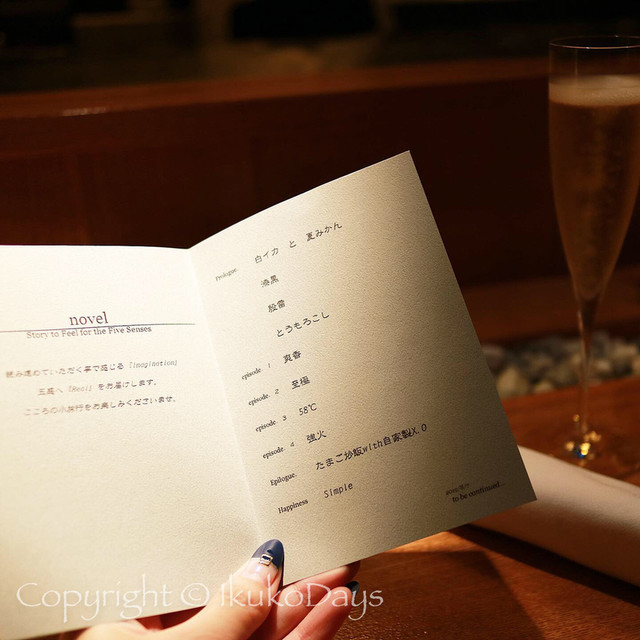 novel
Story to Feel for the Five Senses
読み進めていただく事で感じる「Imagination」
五感へ「Real」をお届けします。
こころの小旅行をお楽しみくださいませ。
Prologue 白イカ と 夏みかん
漆黒
殷雷
とうもろこし
episode 1 爽香
episode 2 至極
episode 3 58℃
episode 4 強火
Epilogue. たまご炒飯with自家製X.O
Happiness Simple
to be continued...
Copyright © IkukoDays